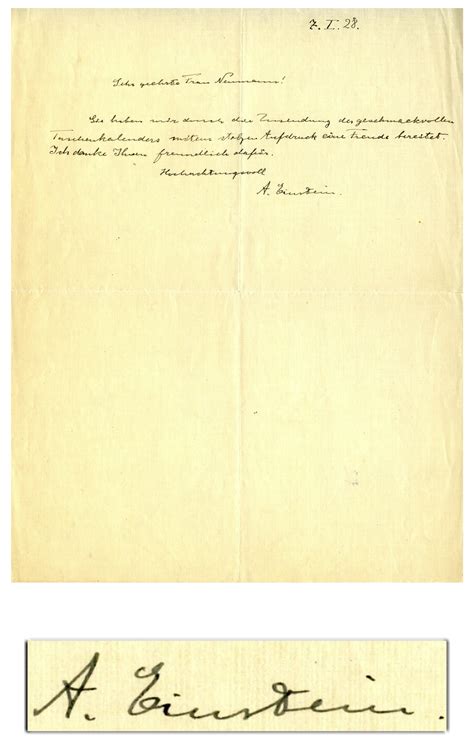 7. I. 28.
Sehr geehrte Frau Neumann!
Sie haben mir durch die Zusendung des geschmackvollen
Taschenkalenders mit dem stolzen Aufdruck eine Freude bereitet.
Ich danke Ihnen freundlich dafür.
Hochachtungsvoll
A. Einstein.
A. Einstein.